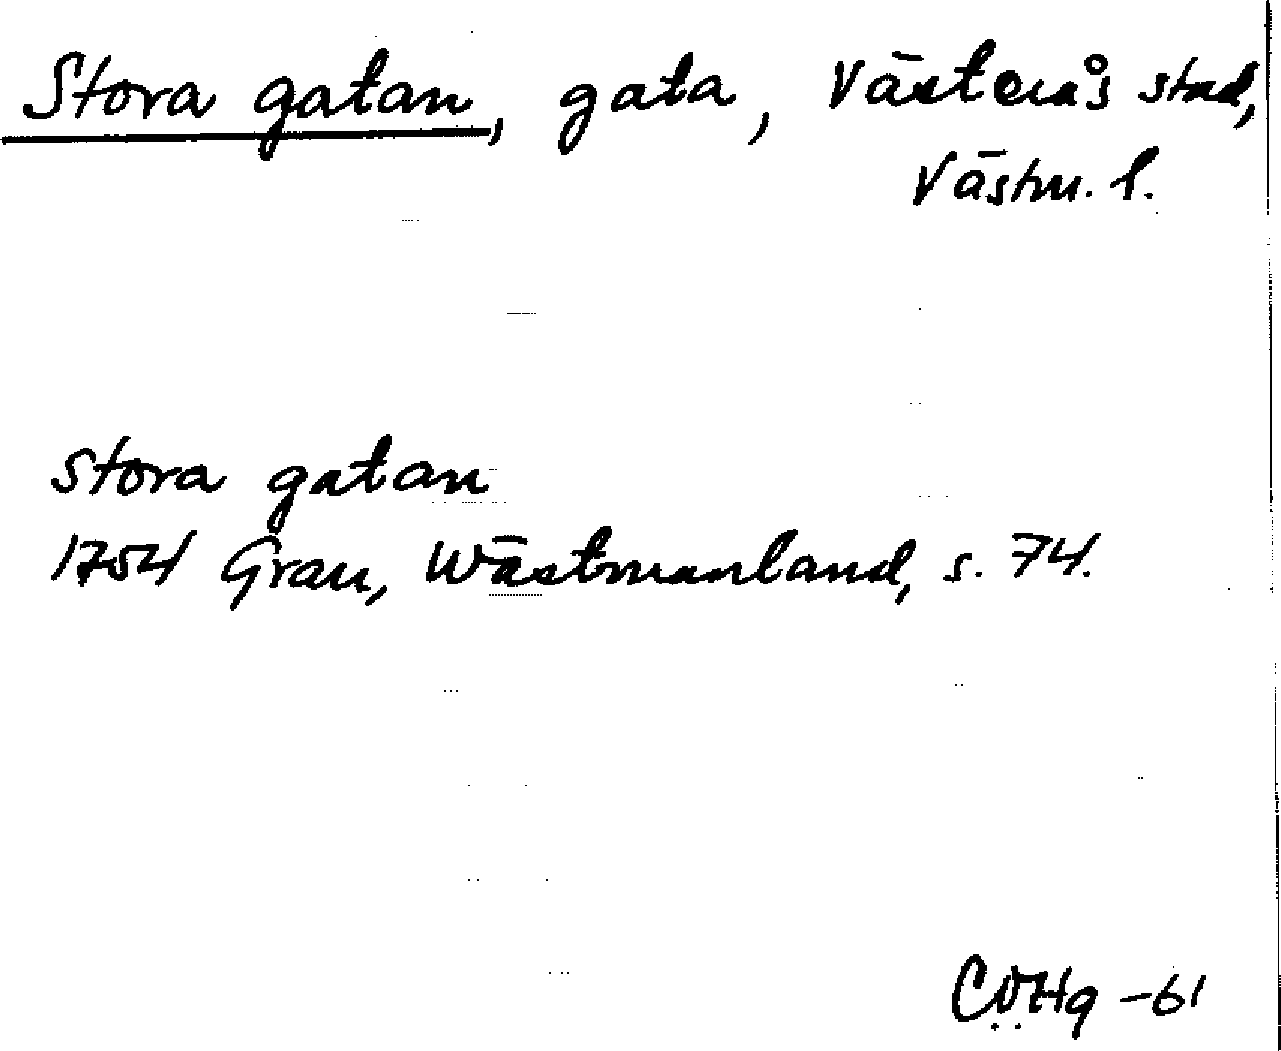 Stora gatan, gata, Västerås stad,
Västm. l.
stora gatan
1754 Grau, Wästmanland, s. 74.